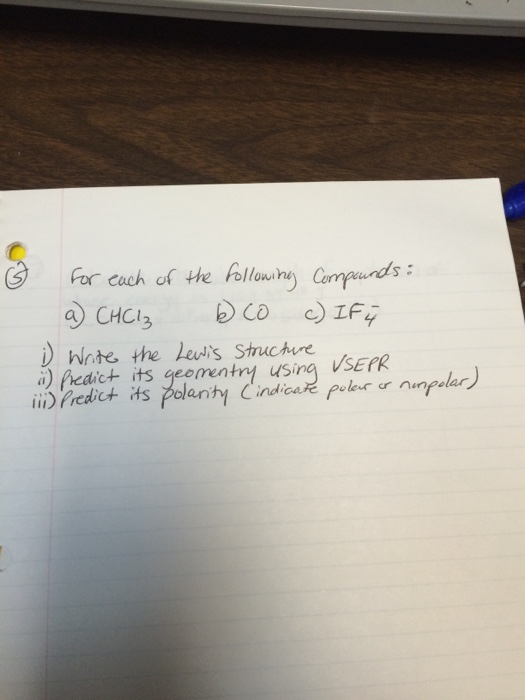 5 For each of the following Compounds:
a) CHCl3 b) CO c) IF4-
i) Write the Lewis Structure
ii) Predict its geomentry using VSEPR
iii) Predict its polarity (indicate polar or nonpolar)